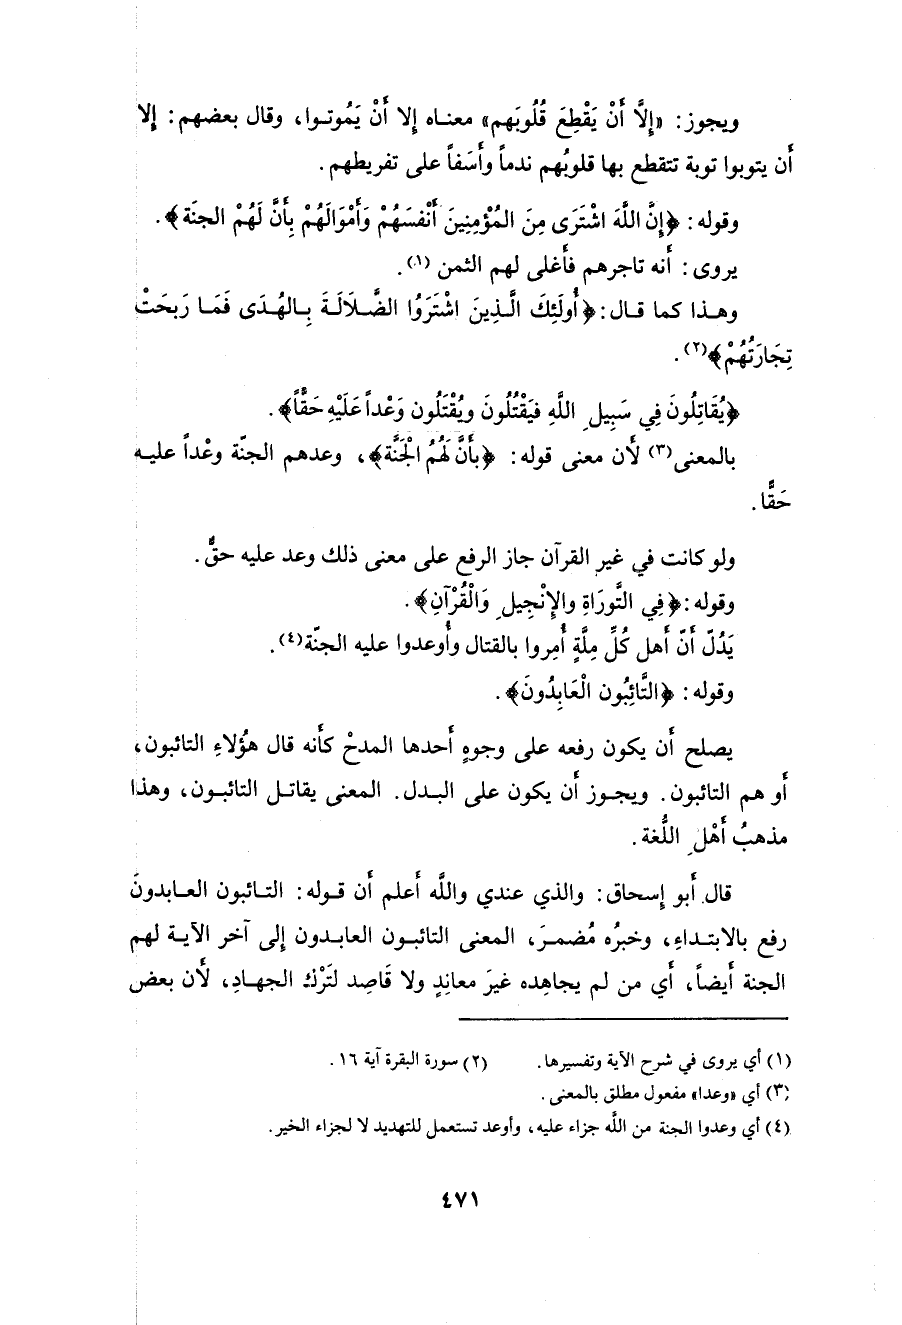 ويجوز: «إِلَّا أَنْ يَقْطِعَ قُلُوبَهم» معنـاه إلا أَنْ يَمُوتـوا، وقال بعضهم: إلا
أَن يتوبوا توبة تتقطع بها قلوبُهم ندماً وأَسَفاً على تفريطهم.
وقوله: ﴿إِنَّ اللَّهَ اشْتَرَى مِنَ المُؤْمِنِينَ أَنْفُسَهُمْ وَأَمْوَالَهُمْ بِأَنَّ لَهُمْ الجنَة﴾.
يروى: أَنه تاجرهم فأَغلى لهم الثمن (١).
وهـذا كما قـال: ﴿أُولَئِكَ الَّـذِينَ اشْتَرَوُا الضَّـلَالَـةَ بِـالهُـدَى فَمَـا رَبِحَتْ
تِجَارَتُهُمْ﴾(٢).
﴿يُقَاتِلُونَ فِي سَبِيلِ اللَّهِ فَيَقْتُلُونَ ويُقْتَلُون وَعْداً عَلَيْهِ حَقًّا﴾.
بالمعنى(٣) لأَن معنى قوله: ﴿بِأَنَّ لَهُمُ الْجَنَّة﴾، وعدهم الجنّة وعْداً عليـه
حَقًّا.
ولو كانت في غير القرآن جاز الرفع على معنى ذلك وعد عليه حقٌّ.
وقوله: ﴿فِي التَّورَاةِ والإِنْجِيلِ وَالْقُرْآنِ﴾.
يَدُلّ أَنّ أَهل كُلِّ مِلَّةٍ أُمِروا بالقتال وأُوعدوا عليه الجنّة(٤).
وقوله: ﴿التَّائِبُون الْعَابِدُونَ﴾.
يصلح أَن يكون رفعه على وجوهٍ أَحدها المدحْ كأَنه قال هؤُلاءِ التائبون،
أَو هم التائبون. ويجـوز أَن يكون على البـدل. المعنى يقاتـل التائبـون، وهذا
مذهبُ أَهْلِ اللُّغة.
قال أَبو إسحاق: والذي عندي واللَّه أَعلم أَن قـوله: التـائبون العـابدونَ
رفع بالابتـداءِ، وخبرُه مُضمـرَ، المعنى التائبـون العابـدون إلى آخر الآيـة لهم
الجنة أَيضاً، أَي من لم يجاهِده غيرَ معانِدٍ ولا قَاصِد لتَرْك الجهـادِ، لأَن بعض
(١) أي يروى في شرح الآية وتفسيرها. (٢) سورة البقرة آية ١٦.
(٣) أي «وعدا» مفعول مطلق بالمعنى.
(٤) أي وعدوا الجنة من اللَّه جزاء عليه، وأوعد تستعمل للتهديد لا لجزاء الخير.
٤٧١